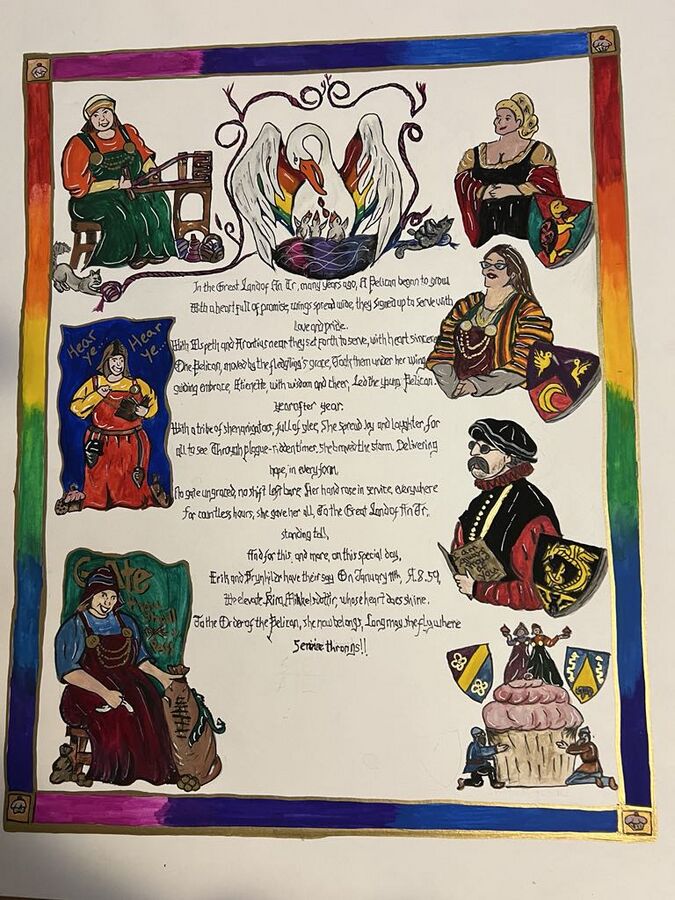 In the Great Land of An Tir, many years ago, A Pelican began to grow
With a heart full of promise, wings spread wide, they signed up to serve with
love and pride.
With Elspeth and near they set forth to serve, with heart sincere
One Pelican, moved by the fledgling's grace, Took them under her wing
guiding embrace, Etienette, with wisdom and cheer, Led the young Pelican
year after year.
With a tribe of shenanigators, full of glee, She spread Joy and laughter for
all to see Through plague-ridden times, she braved the storm, Delivering
hope, in every form.
No gate ungraced, no shift left bare Her hand rose in service, everywhere
For countless hours, she gave her all, To the Great Land of An Tir,
standing tall,
And for this, and more, on this special day,
Erik and Brynhildr have their say On January 11th, A.S. 59,
We elevate Kira, whose heart does shine.
To the Order of the Pelican, she now belongs, Long may she fly where
Service throngs!!
Hear
ye...
Hear
ye...
Gate